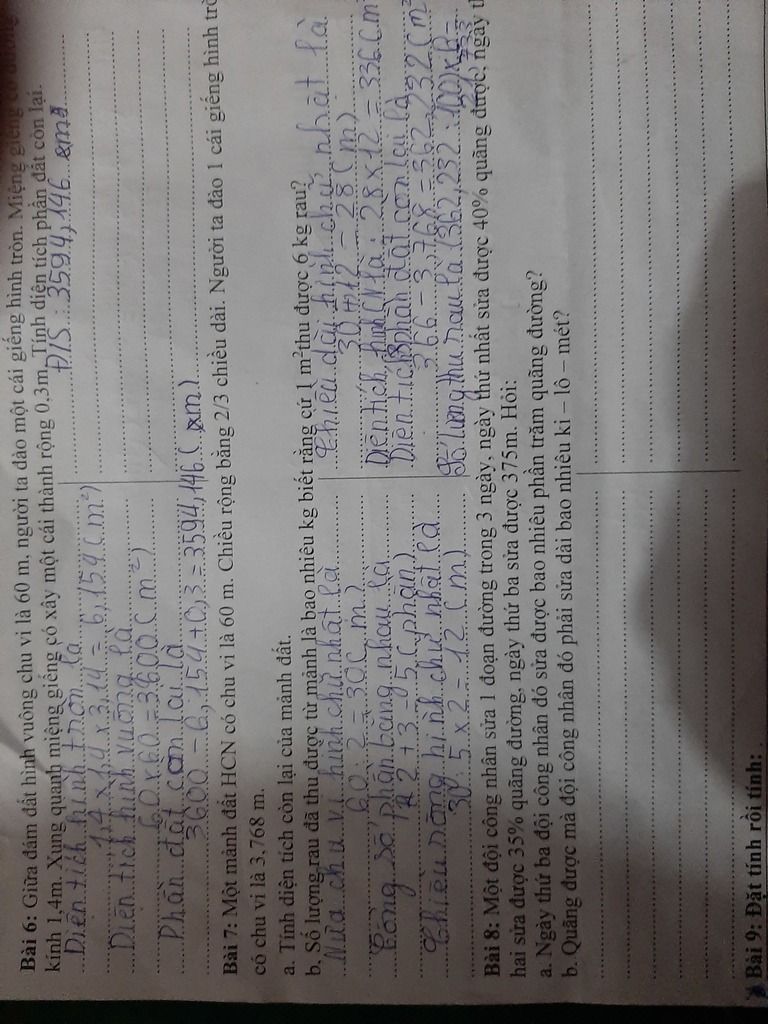 Bài 6: Giữa đám đất hình vuông chu vi là 60 m, người ta đào một cái giếng hình tròn. Miệng giếng có
kính 1,4m. Xung quanh miệng giếng có xây một cái thành rộng 0,3m. Tính diện tích phần đất còn lại.
Diện tích hình tròn là
1,4 x 1,4 x 3,14 = 6,154 (m²)
Diện tích hình vuông là
60 x 60 = 3600 (m²)
Phần đất còn lại là
3600 - 6,154 + 0,3 = 3594,146 (m)
Đ/S: 3594,146
Bài 7: Một mảnh đất HCN có chu vi là 60 m. Chiều rộng bằng 2/3 chiều dài. Người ta đào 1 cái giếng hình
có chu vi là 3,768 m.
a. Tính diện tích còn lại của mảnh đất.
b. Số lượng rau đã thu được từ mảnh là bao nhiêu kg biết rằng cứ 1 m² thu được 6 kg rau?
Nửa chu vi hình chữ nhật là
60 : 2 = 30 (m)
Tổng số phần bằng nhau là
2 + 3 = 5 (phần)
Chiều rộng hình chữ nhật là
30 : 5 x 2 = 12 (m)
Chiều dài hình chữ nhật là
30 + 12 = 28 (m)
Diện tích hình CN là: 28 x 12 = 336 (m
Diện tích phần đất còn lại là
366 - 3,768 = 362,232 (m²
Số lượng thu rau là (362,232 : 100) x 6 =
Bài 8: Một đội công nhân sửa 1 đoạn đường trong 3 ngày, ngày thứ nhất sửa được 40% quãng được, ngày
hai sửa được 35% quãng đường, ngày thứ ba sửa được 375m. Hỏi:
a. Ngày thứ ba đội công nhân đó sửa được bao nhiêu phần trăm quãng đường?
b. Quãng được mà đội công nhân đó phải sửa dài bao nhiêu ki – lô – mét?
Bài 9: Đặt tính rồi tính: